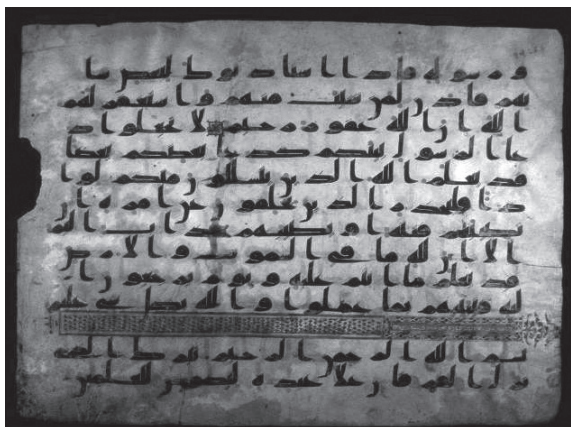 ورسوله فاذا استاذنوك لبعض شا
نهم فاذن لمن شئت منهم واستغفر لهم
الله ان الله غفور رحيم لا تجعلوا د
عا الرسول بينكم كدعا بعضكم بعضا
قد يعلم الله الذين يتسللون منكم لوا
ذا فليحذر الذين يخلفون عن امره ان
تصيبهم فتنة او يصيبهم عذاب اليم
الا ان لله ما في السموت والارض
قد يعلم ما انتم عليه ويوم يرجعون ا
ليه فينبئهم بما عملوا والله بكل شي عليم
بسم الله الرحمن الرحيم تبرك الذى
نزل الفرقن على عبده ليكون للعلمين